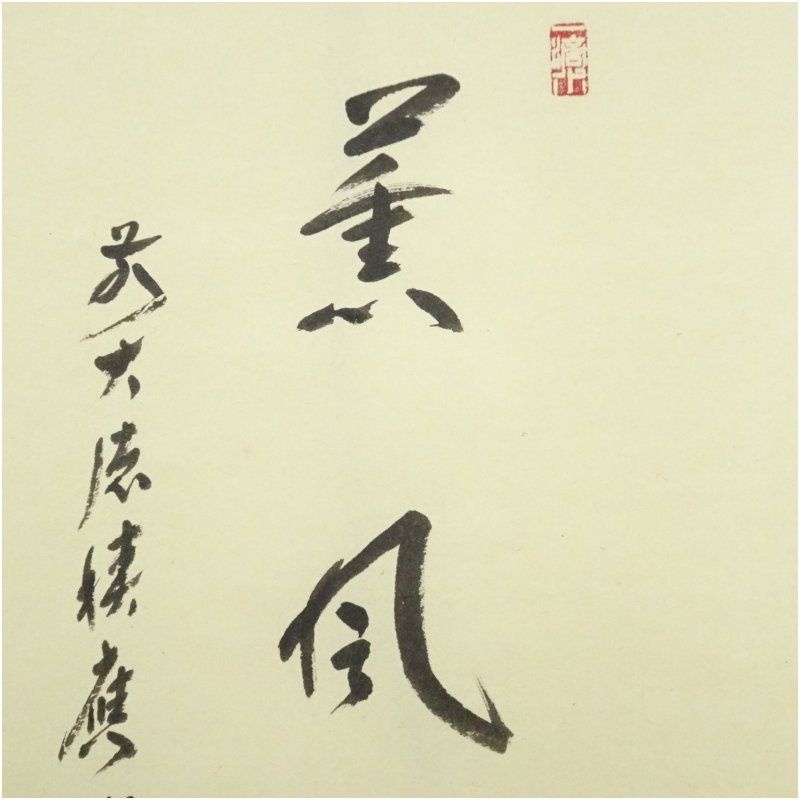 薫風
前大徳積應